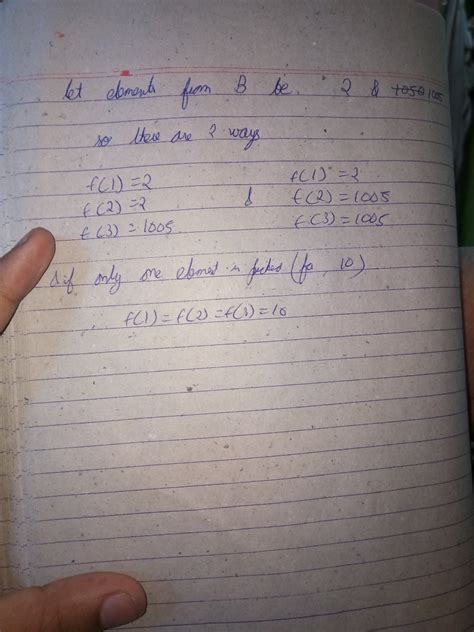 let elements from B be. 2 & 1005
so there are 2 ways
f(1) = 2
f(2) = 2
f(3) = 1005
&
f(1) = 2
f(2) = 1005
f(3) = 1005
& if only one element is picked (fo, 10)
∴ f(1) = f(2) = f(3) = 10